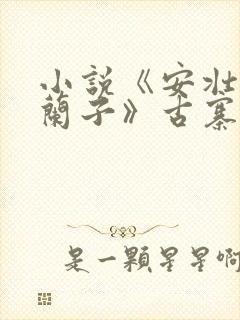 小說《安壯
蘭子》古寨
是一顆星星啊